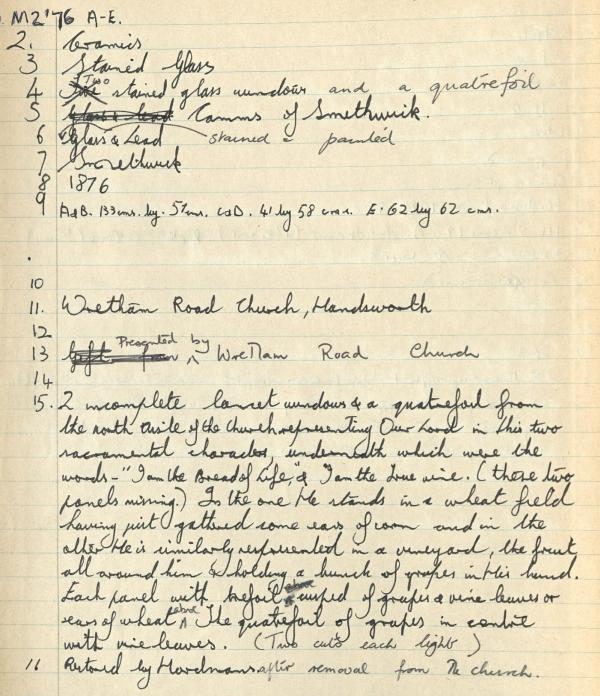 M2'76 A-E.
2. Ceramics
3 Stained Glass
4 Two stained glass windows and a quatrefoil
5 Glass & Lead Camms of Smethwick.
6 Glass & Lead stained & painted
7 Smethwick
8 1876
9 A & B. 133 cms. by. 51 cms. C & D. 41 by 58 cms. E. 62 by 62 cms.
10
11. Wretham Road Church, Handsworth
12
13 Gift from Presented by Wretham Road Church
14
15. 2 incomplete lancet windows & a quatrefoil from
the north aisle of the church representing Our Lord in this two
sacramental character, underneath which were the
words - "I am the Bread of Life," & "I am the True vine. (these two
panels missing.) In the one He stands in a wheat field
having just gathered some ears of corn and in the
other He is similarly represented in a vineyard, the fruit
all around him & holding a bunch of grapes in His hand.
Each panel with trefoil above cusped of grapes & vine leaves or
ears of wheat above The quatrefoil of grapes in centre
with vine leaves. (Two cuts each light)
16 Restored by Hardmans after removal from the church.